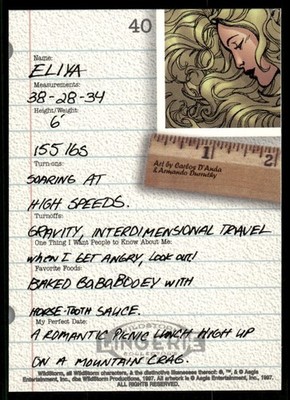 40
Name:
ELIYA
Measurements:
38-28-34
Height/Weight:
6'
155 lbs
Turn-ons:
SOARING AT
HIGH SPEEDS.
Turnoffs:
GRAVITY, INTERDIMENSIONAL TRAVEL
One Thing I Want People to Know About Me:
WHEN I GET ANGRY, LOOK OUT!
Favorite Foods:
BAKED BABABOOEY WITH
HORSE-TOOTH SAUCE.
My Perfect Date:
A ROMANTIC PICNIC LUNCH HIGH UP
ON A MOUNTAIN CRAG.
1 2
Art by Carlos D'Anda
& Armando Durruthy
WILDSTORM
SWIMSUIT
WildStorm, all WildStorm characters, & the distinctive likenesses thereof, ®, ™, & © Aegis
Entertainment, Inc., dba WildStorm Productions, 1997. All artwork is © Aegis Entertainment, Inc., 1997.
ALL RIGHTS RESERVED.